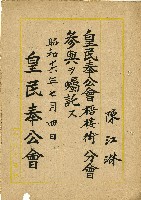 陳江淋
皇民奉公會艋舺街分會
參與ヲ囑託ス
昭和十六年七月四日
皇民奉公會